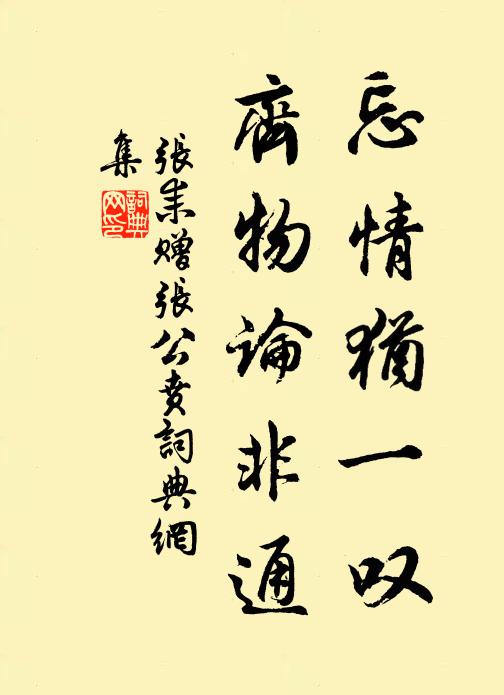 忘情猶一叹
齊物論非通
張耒贈張公賁詞典網
集
詞典网印